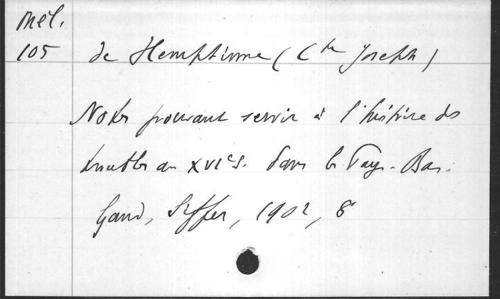 Mél.
105 de Hemptinne (Cte Joseph)
Notes pouvant servir à l'histoire des
troubles au XVIe s. dans les Pays-Bas.
Gand, Siffer, 1902, 8°